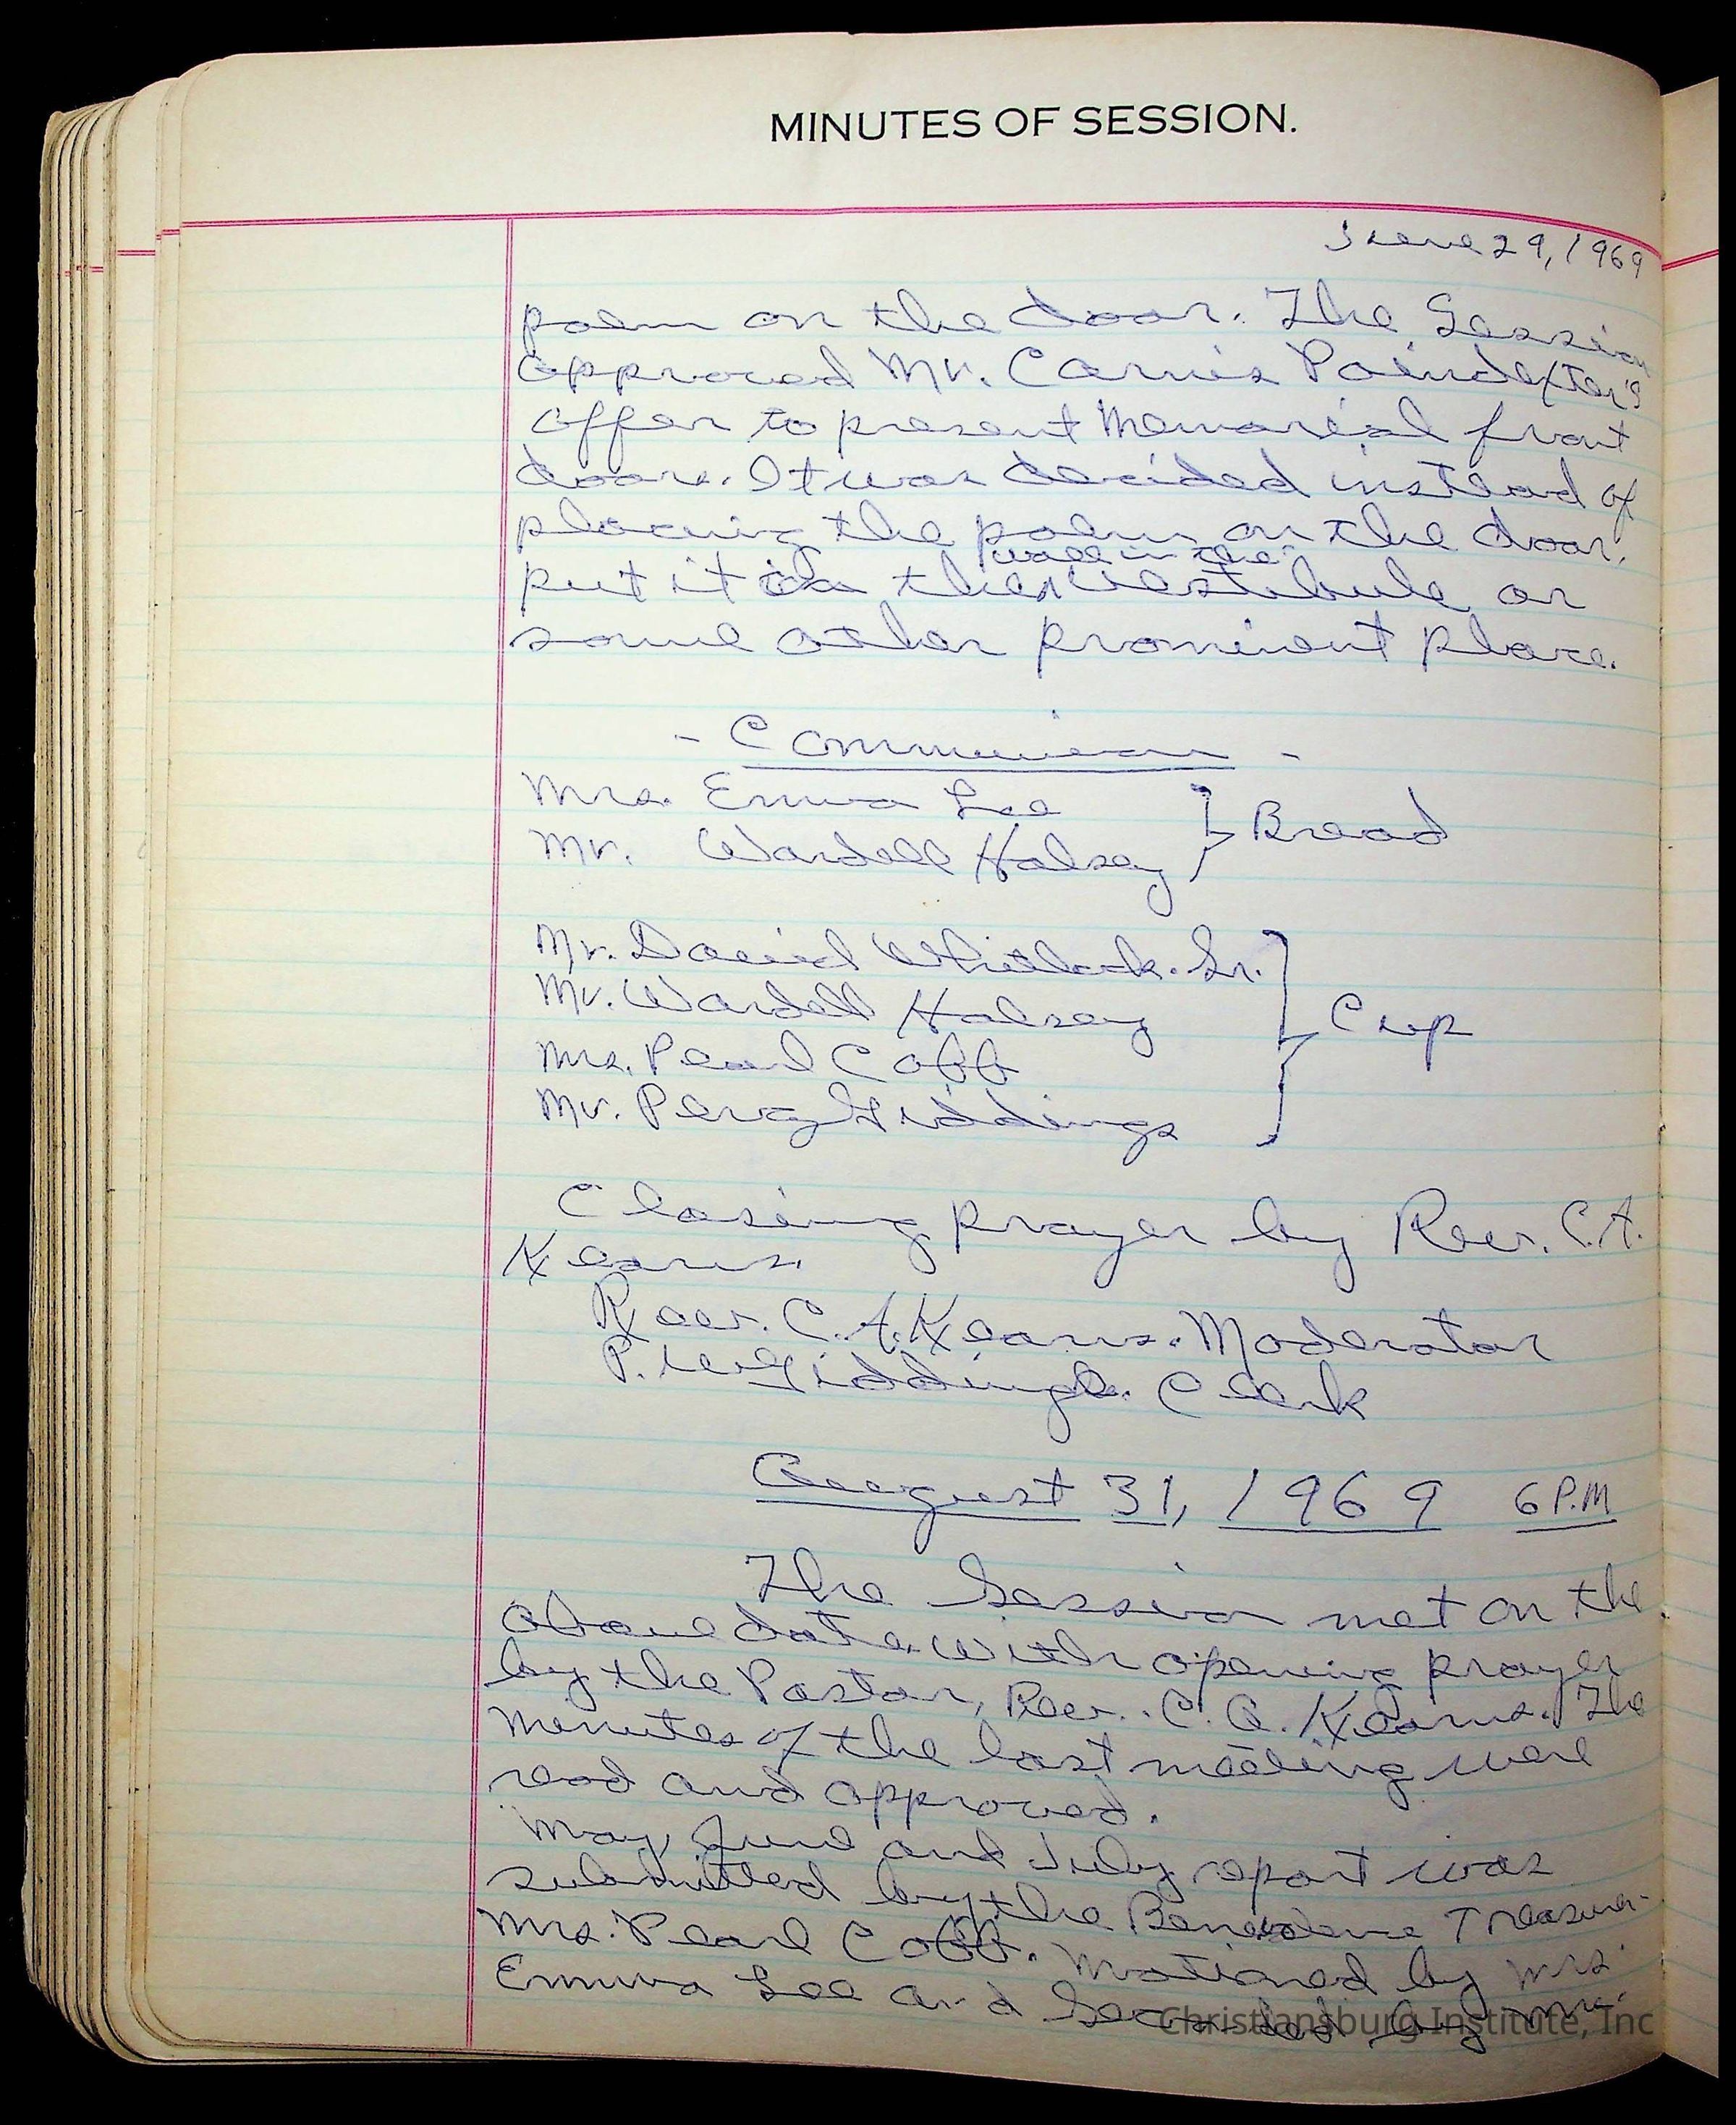 MINUTES OF SESSION.
June 29, 1969
poem on the door. The Session
approved Mr. Carnis Poindexter's
offer to present Memorial front
doors. It was decided instead of
placing the poem on the door,
wall in the
put it on the vestibule or
some other prominent place.
- Communion -
Mrs. Emma Lee
Mr. Wardell Halsey } Bread
Mr. David Whitlock. Sr.
Mr. Wardell Halsey
} Cup
Mrs. Pearl Cobb
Mr. Percy Giddings
Closing prayer by Rev. C.A.
Kearns.
Rev. C. A. Kearns. Moderator
P. W. Giddings. Clerk
August 31, 1969 6 P.M
The Session met on the
above date with opening prayer
by the Pastor, Rev. C. A. Kearns. The
minutes of the last meeting were
read and approved.
May, June and July report was
submitted by the Benevolence Treasurer-
Mrs. Pearl Cobb. Motioned by Mrs.
Emma Lee and Seconded by Mr.
Christiansburg Institute, Inc